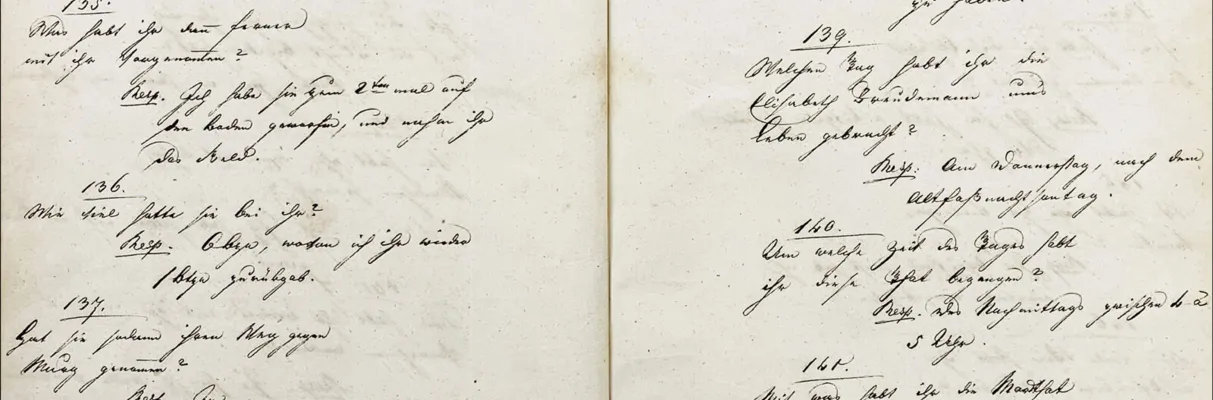 135.
Was habt ihr dann ferner
mit ihr vorgenomen?
Resp. Ich habe sie zum 2ten mal auf
den Boden geworfen, und nahm ihr
das Geld.
136.
Wie viel hatte sie bei ihr?
Resp. 6 btzn, wovon ich ihr wieder
1 btzn zurükgab.
137.
Hat sie sodann ihren Weg gegen
Murg genomen?
Resp. Ja
zu haben?
139.
Welchen Tag habt ihr die
Elisabeth Brudemann ums
Leben gebracht?
Resp. Am Donnerstag, nach dem
Altfaßnachtsontag.
140.
Um welche Zeit des Tages habt
ihr diese That begangen?
Resp. Des Nachmittags zwischen 4 a
5 Uhr.
141.
Mit was habt ihr die Mordthat